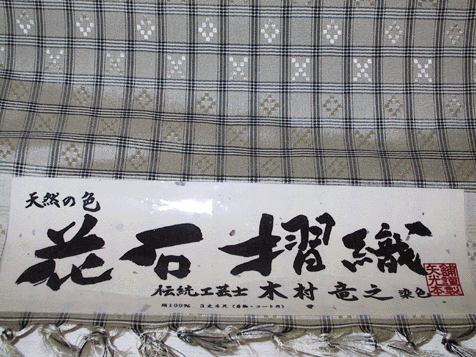 天然の色
花石摺織
伝統工芸士 木村竜之 染色
絹100%